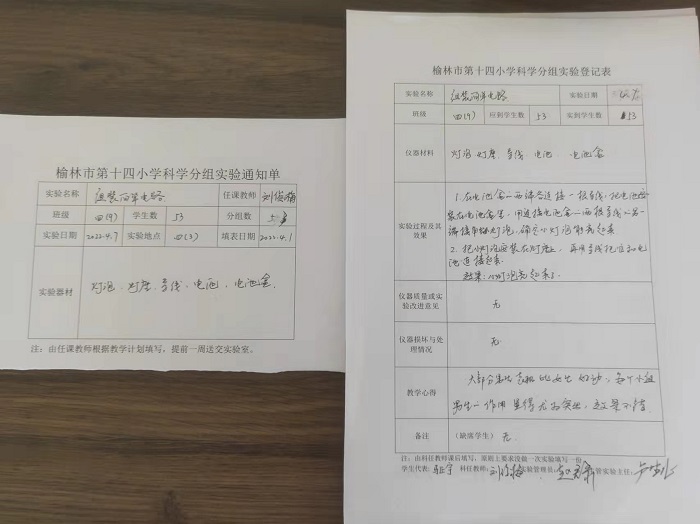 榆林市第十四小学科学分组实验通知单
实验名称 组装简单电路 任课教师
班级 四(9) 学生数 53 分组数
实验日期 2022.4.7 实验地点 四(3) 填表日期 2022.4.1
实验器材 灯泡、灯座、导线、电池、电池盒
注：由任课教师根据教学计划填写，提前一周送交实验室。
榆林市第十四小学科学分组实验登记表
实验名称 组装简单电路 实验日期
班级 四(9) 应到学生数 53 实到学生数 53
仪器材料 灯泡 灯座 导线 电池 电池盒
实验过程及其
效果
1.在电池盒的两端各连接一根导线，把电池
装在电池盒里，用连接电池盒的两根导线的另一
端接
2.把小灯泡安装在灯座上，再用导线把
池连接起来
结果：小灯泡亮起来了
仪器质量或实
验改进意见
无
仪器损坏与处
理情况
无
教学心得
大部分
男生的作用显得尤为突出，效果不错。
备注 (缺席学生) 无
注：由科任教师课后填写，原则上要求没做一次实验填写一份
学生代表: 科任教师: 实验管理员: 管实验主任: